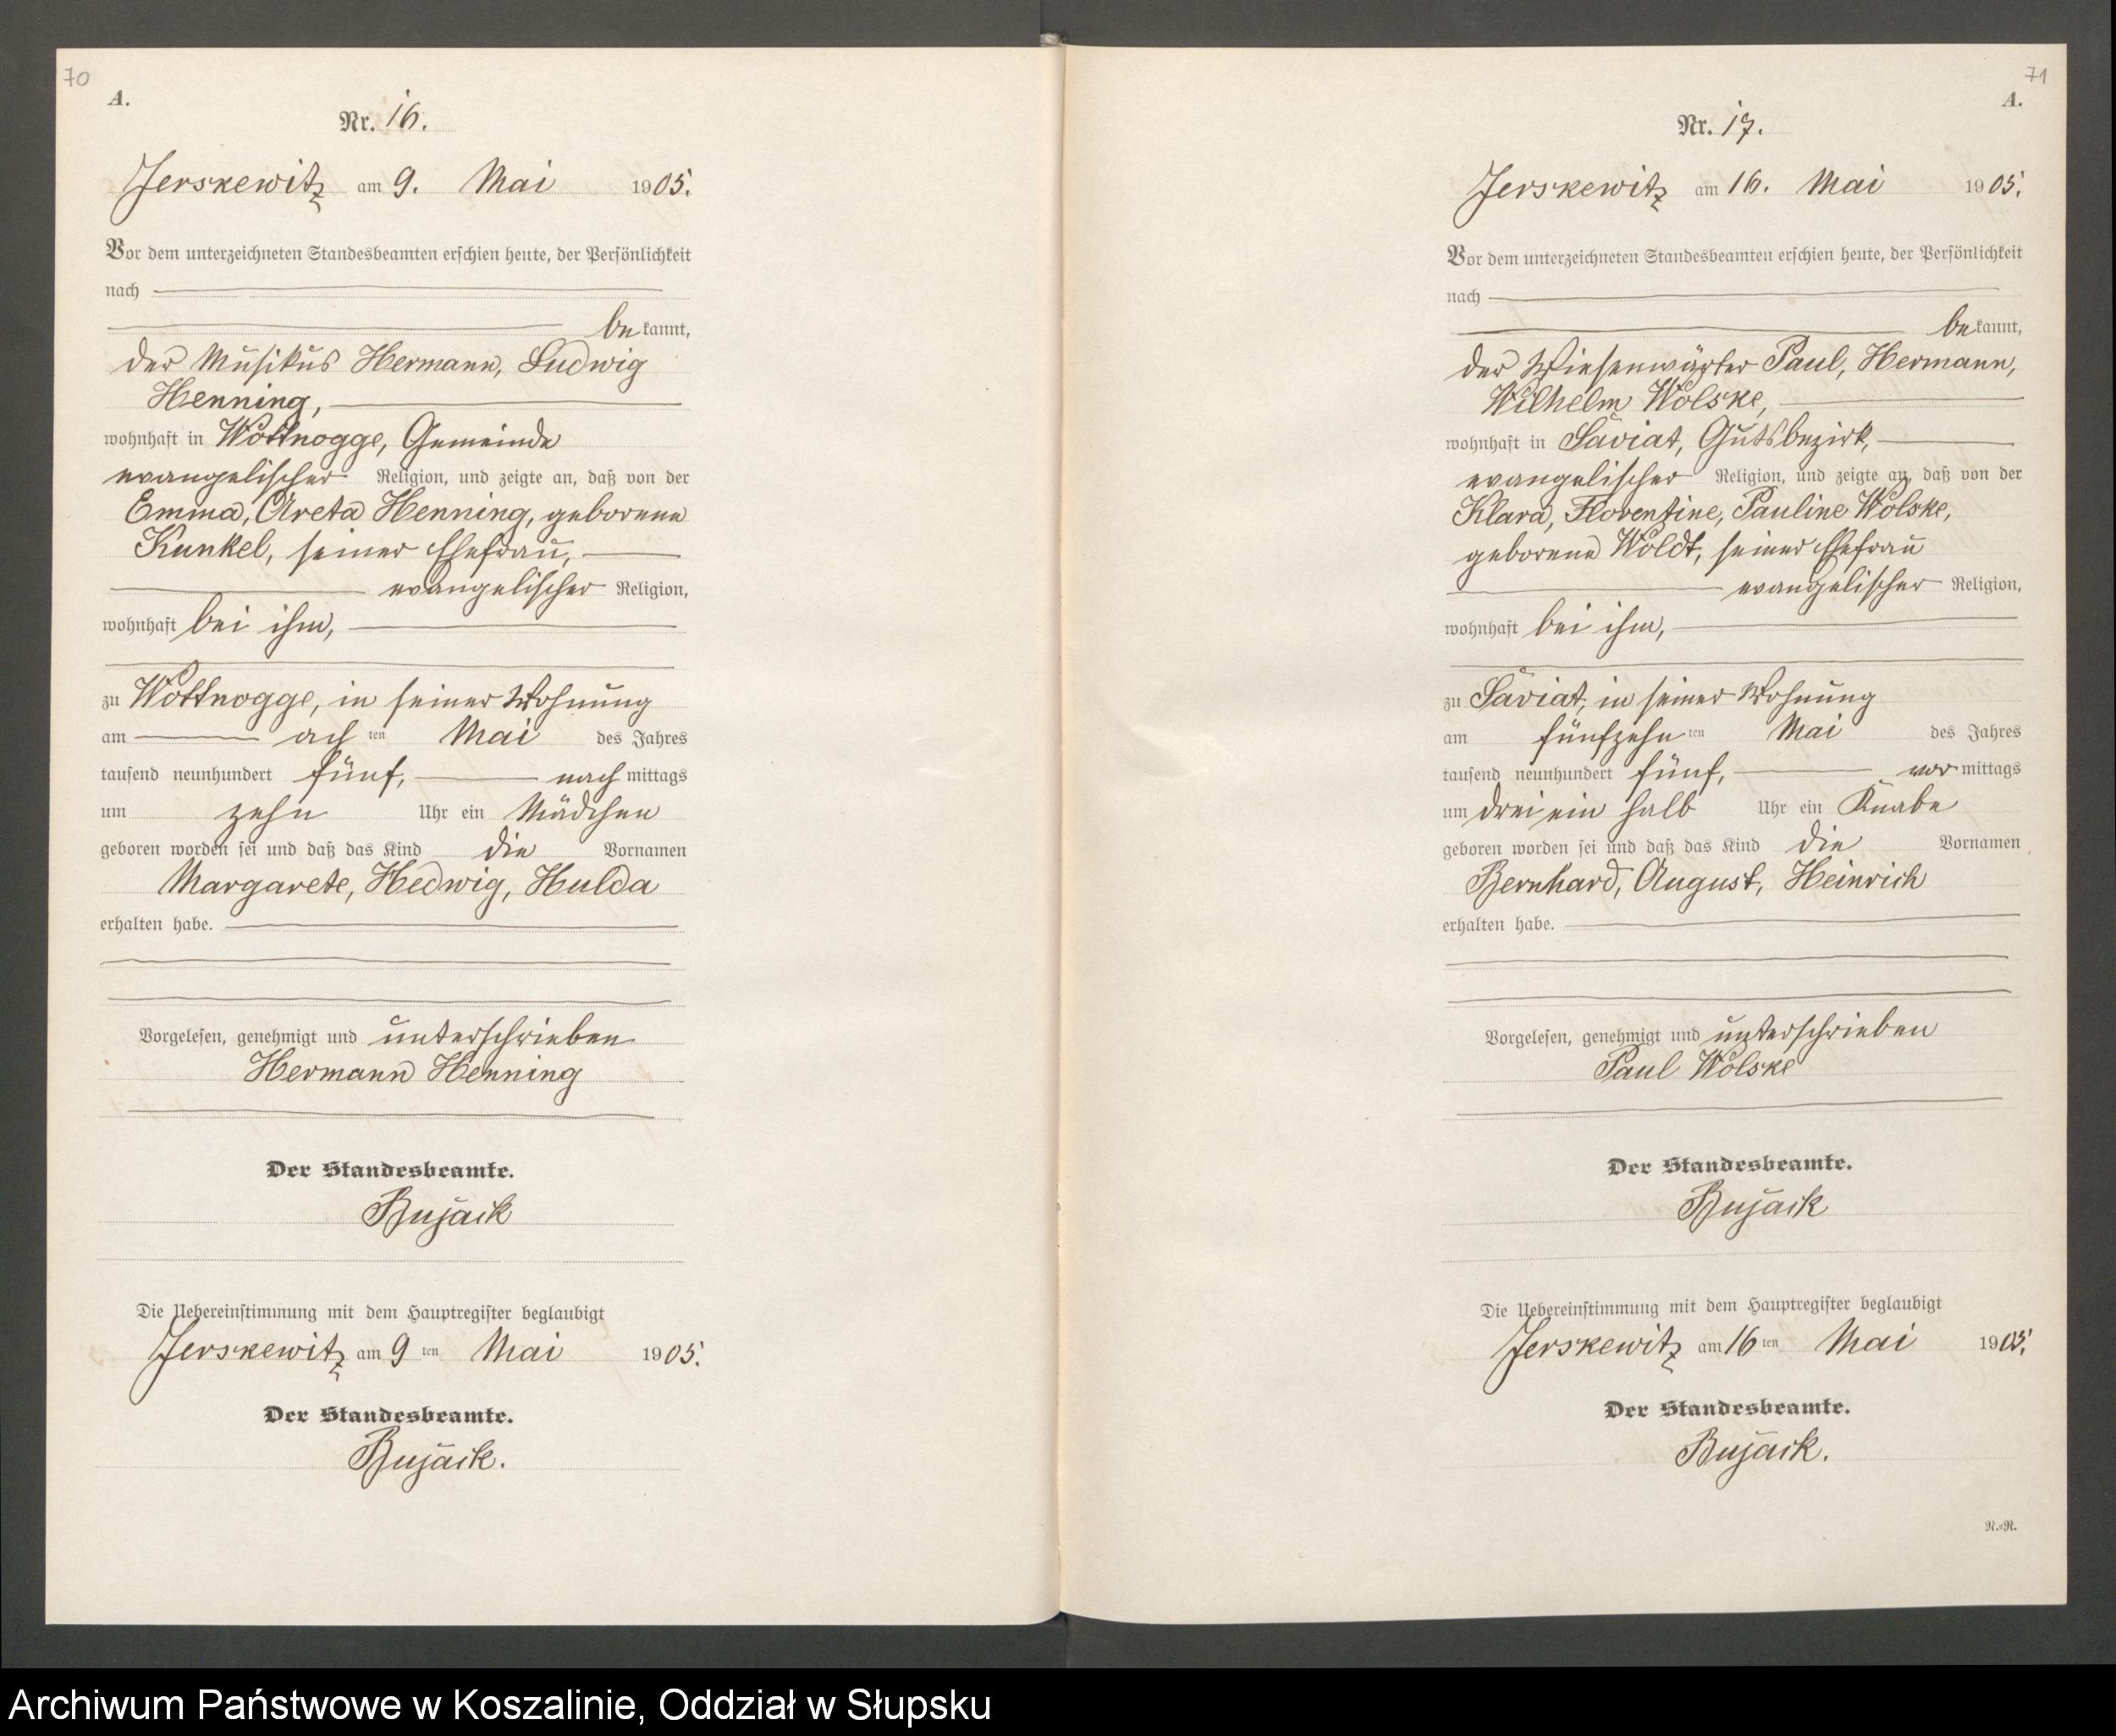 70
A.
Nr. 16.
Jerskewitz am 9. Mai 1905.
Vor dem unterzeichneten Standesbeamten erschien heute, der Persönlichkeit
nach
bekannt,
der Musikus Hermann, Ludwig
Henning,
wohnhaft in Wottnogge, Gemeinde
evangelischer Religion, und zeigte an, daß von der
Emma, Areta Henning, geborene
Kunkel, seiner Ehefrau,
evangelischer Religion,
wohnhaft bei ihm,
zu Wottnogge, in seiner Wohnung
am achten Mai des Jahres
tausend neunhundert fünf, nachmittags
um zehn Uhr ein Mädchen
geboren worden sei und daß das Kind die Vornamen
Margarete, Hedwig, Hulda
erhalten habe.
Vorgelesen, genehmigt und unterschrieben
Hermann Henning
Der Standesbeamte.
Bujack
Die Uebereinstimmung mit dem Hauptregister beglaubigt
Jerskewitz am 9ten Mai 1905.
Der Standesbeamte.
Bujack.
71
A.
Nr. 17.
Jerskewitz am 16. Mai 1905.
Vor dem unterzeichneten Standesbeamten erschien heute, der Persönlichkeit
nach
bekannt,
der Wiesenwärter Paul, Hermann,
Wilhelm Wolske,
wohnhaft in Saviat, Gutsbezirk,
evangelischer Religion, und zeigte an, daß von der
Klara, Florentine, Pauline Wolske,
geborene Woldt, seiner Ehefrau
evangelischer Religion,
wohnhaft bei ihm,
zu Saviat, in seiner Wohnung
am fünfzehnten Mai des Jahres
tausend neunhundert fünf, vormittags
um drei ein halb Uhr ein Knabe
geboren worden sei und daß das Kind die Vornamen
Bernhard, August, Heinrich
erhalten habe.
Vorgelesen, genehmigt und unterschrieben
Paul Wolske
Der Standesbeamte.
Bujack
Die Uebereinstimmung mit dem Hauptregister beglaubigt
Jerskewitz am 16ten Mai 1905.
Der Standesbeamte.
Bujack.
R.=R.
Archiwum Państwowe w Koszalinie, Oddział w Słupsku